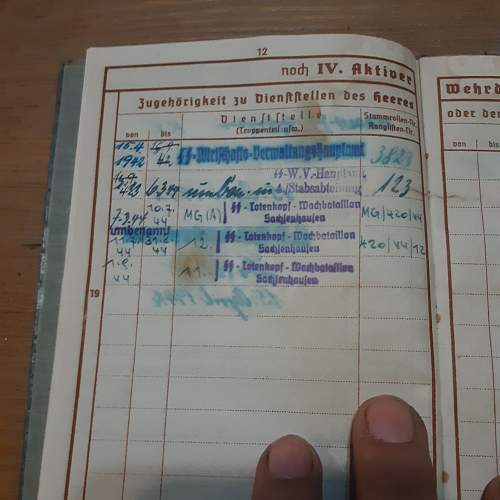 12
noch IV. Aktiver
Wehrd
Zugehörigkeit zu Dienststellen des Heeres
oder den
von bis Dienststelle (Truppenteil usw.) Stammrollen-Nr. Ranglisten-Nr.
15.4. 1942 42 SS-Wirtschafts-Verwaltungshauptamt 382
SS-W.V.-Haupt
4.43 umben. in /Stabsabteilung 123
7.3.44 10.7. 44 MG (A) SS-Totenkopf-Wachbataillon Sachsenhausen MG/420/44
umbenannt
11.7. 44 31.8. 44 12. SS-Totenkopf-Wachbataillon Sachsenhausen 420/44/12
44 11. SS-Totenkopf-Wachbataillon Sachsenhausen
19